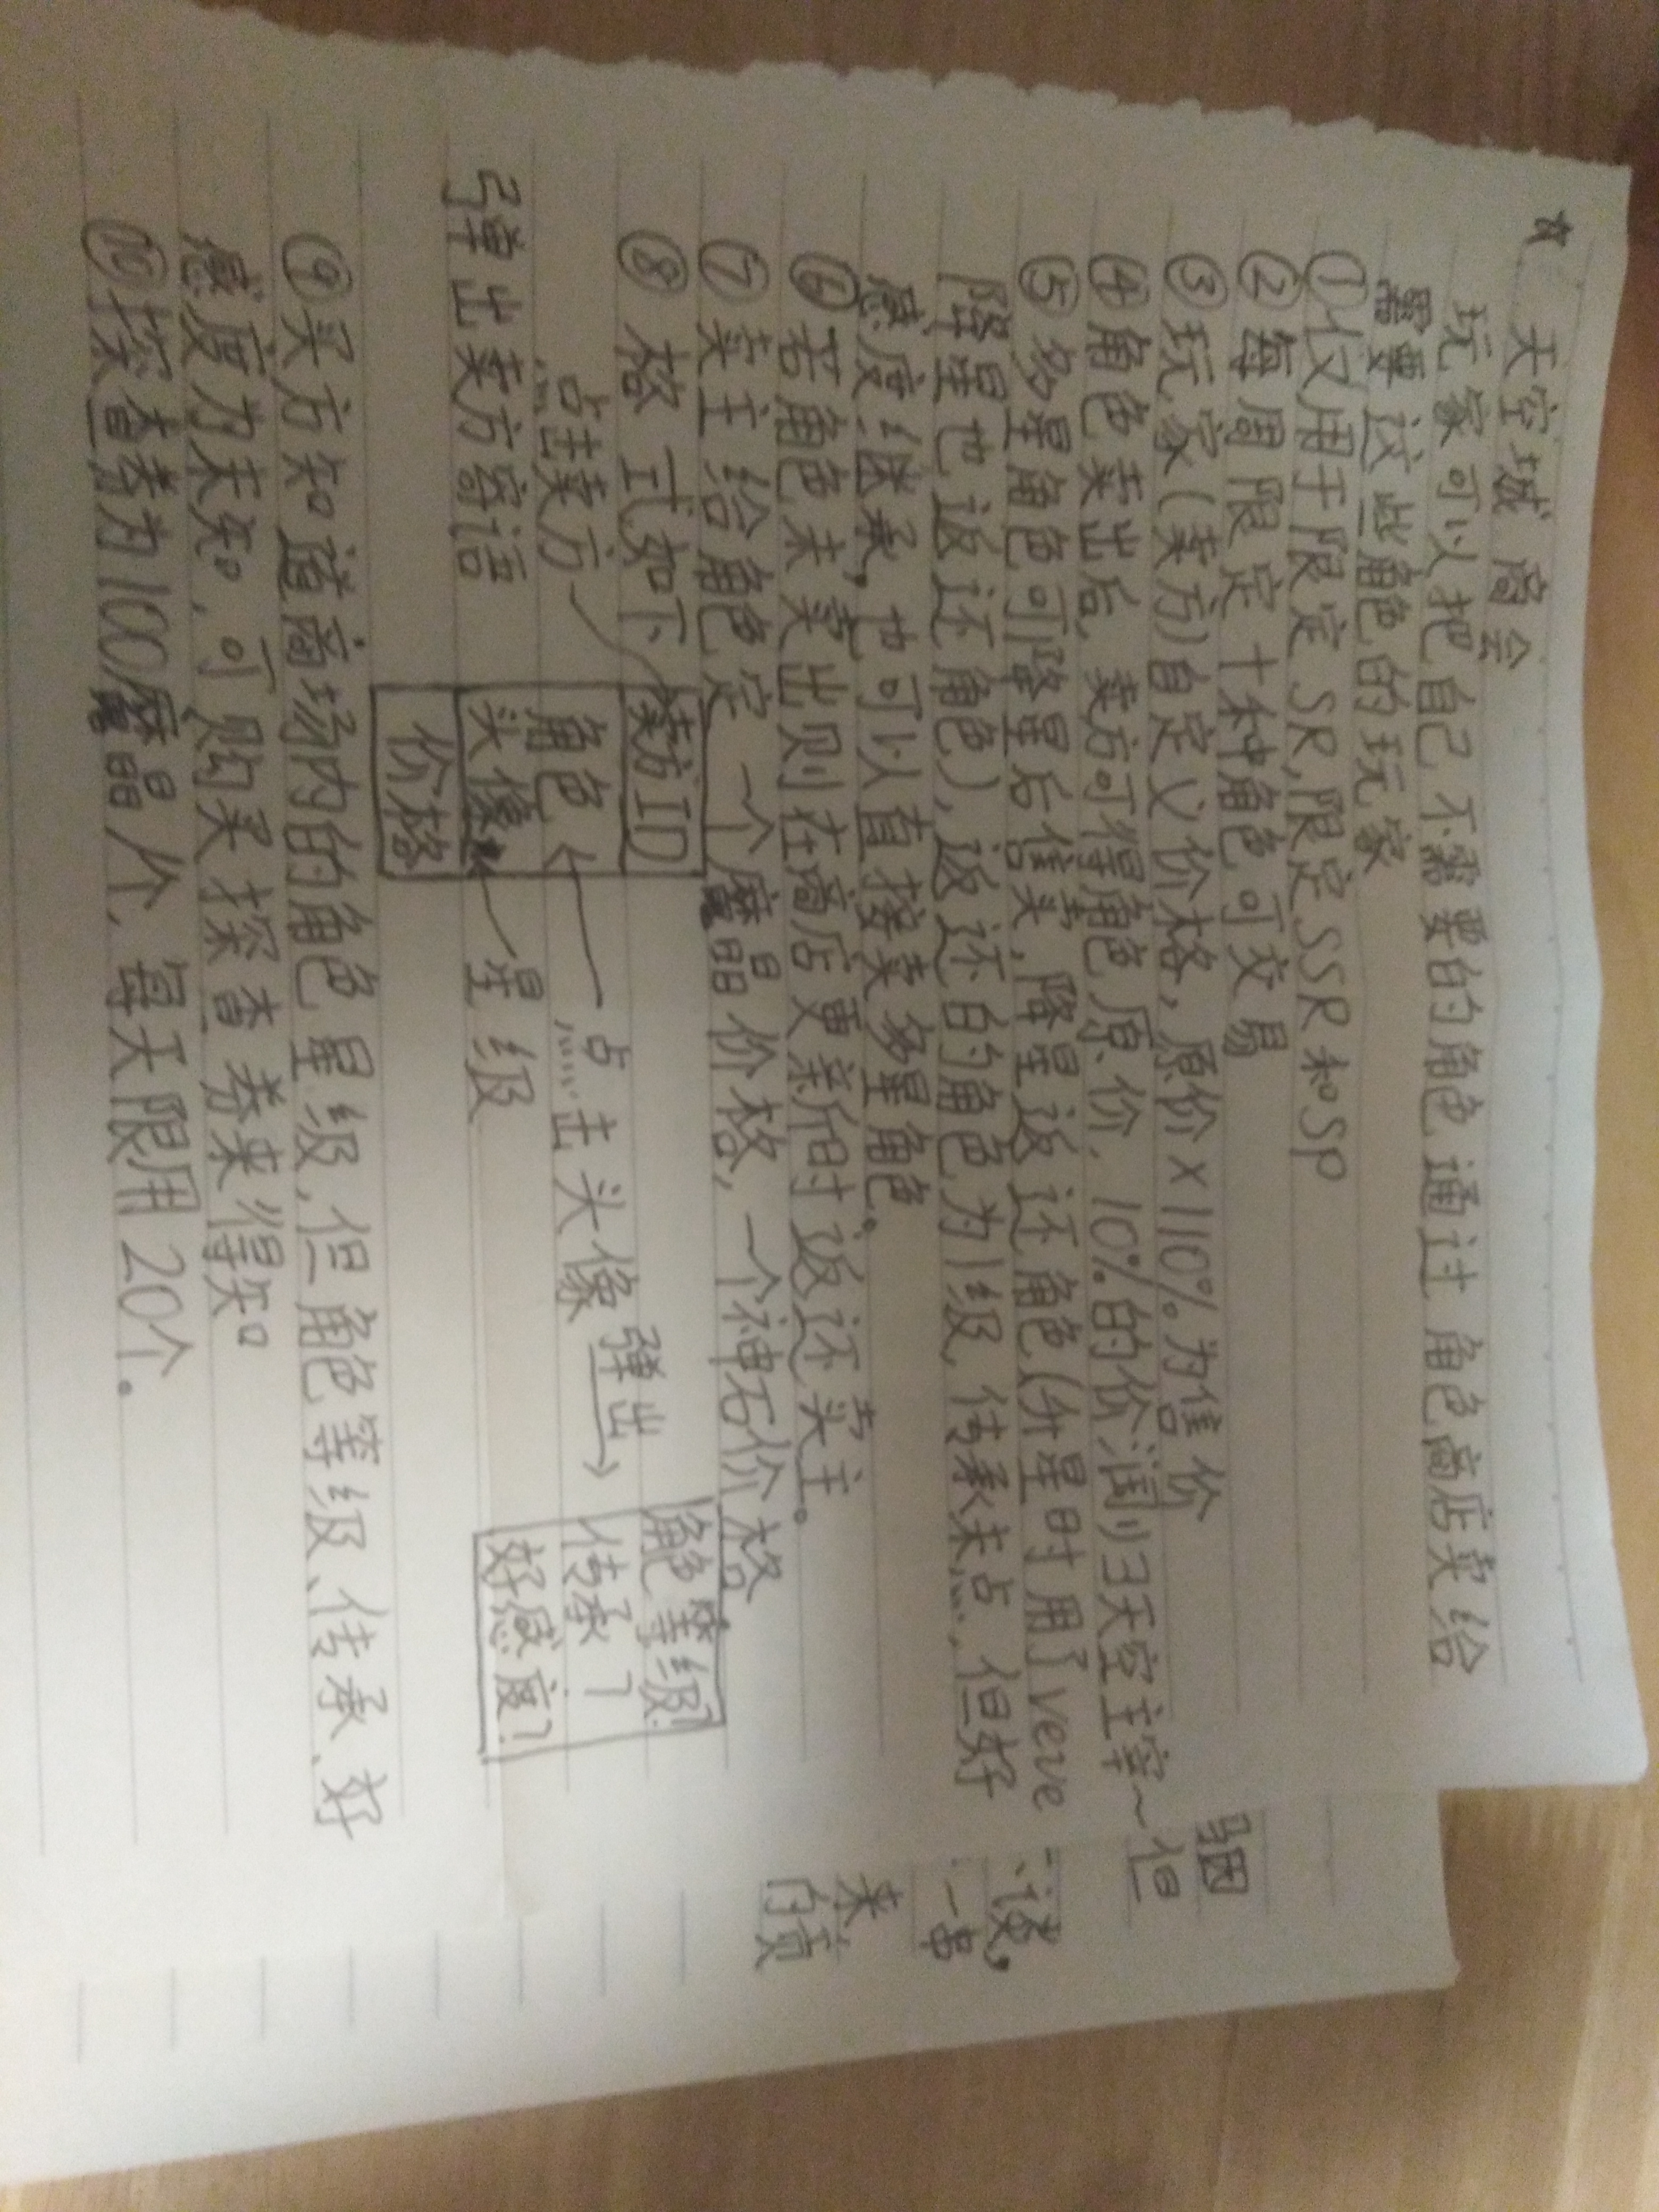 ☆ 天空城商会
玩家可以把自己不需要的角色通过角色商店卖给
需要这些角色的玩家
①仅用于限定SR,限定SSR和SP
②每周限定十种角色可交易
③玩家(卖方)自定义价格,原价×110%为售价
④角色卖出后,卖方可得角色原价.10%的价润归天空主宰~
⑤多星角色可降星后售卖,降星返还角色(升星时用了verve
降星也返还角色),返还的角色为1级,传承未点,但好
感度继承,也可以直接卖多星角色。
⑥若角色未卖出则在商店更新后时返还卖主。
⑦卖主给角色定一个魔晶价格,一个神石价格
⑧格式如下
卖方ID
角色
头像
价格
点击卖方
弹出卖方寄语
点击头像 弹出→
角色等级?
传承?
好感度?
←星级
⑨买方知道商场内的角色星级,但角色等级、传承、好
感度为未知,可购买探查券来得知
⑩探查券为100魔晶/个,每天限用20个。
但
一串
来